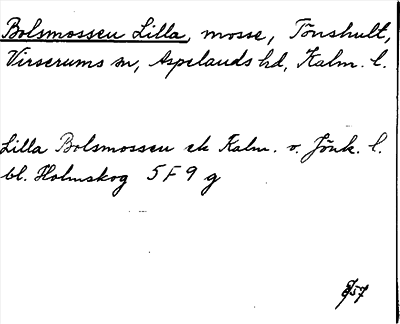 Bolsmossen Lilla, mosse, Tönshult,
Virserums sn, Aspelands hd, Kalm. l.
Lilla Bolsmossen ek Kalm. o. Jönk. l.
bl. Holmskog 5F9g
57